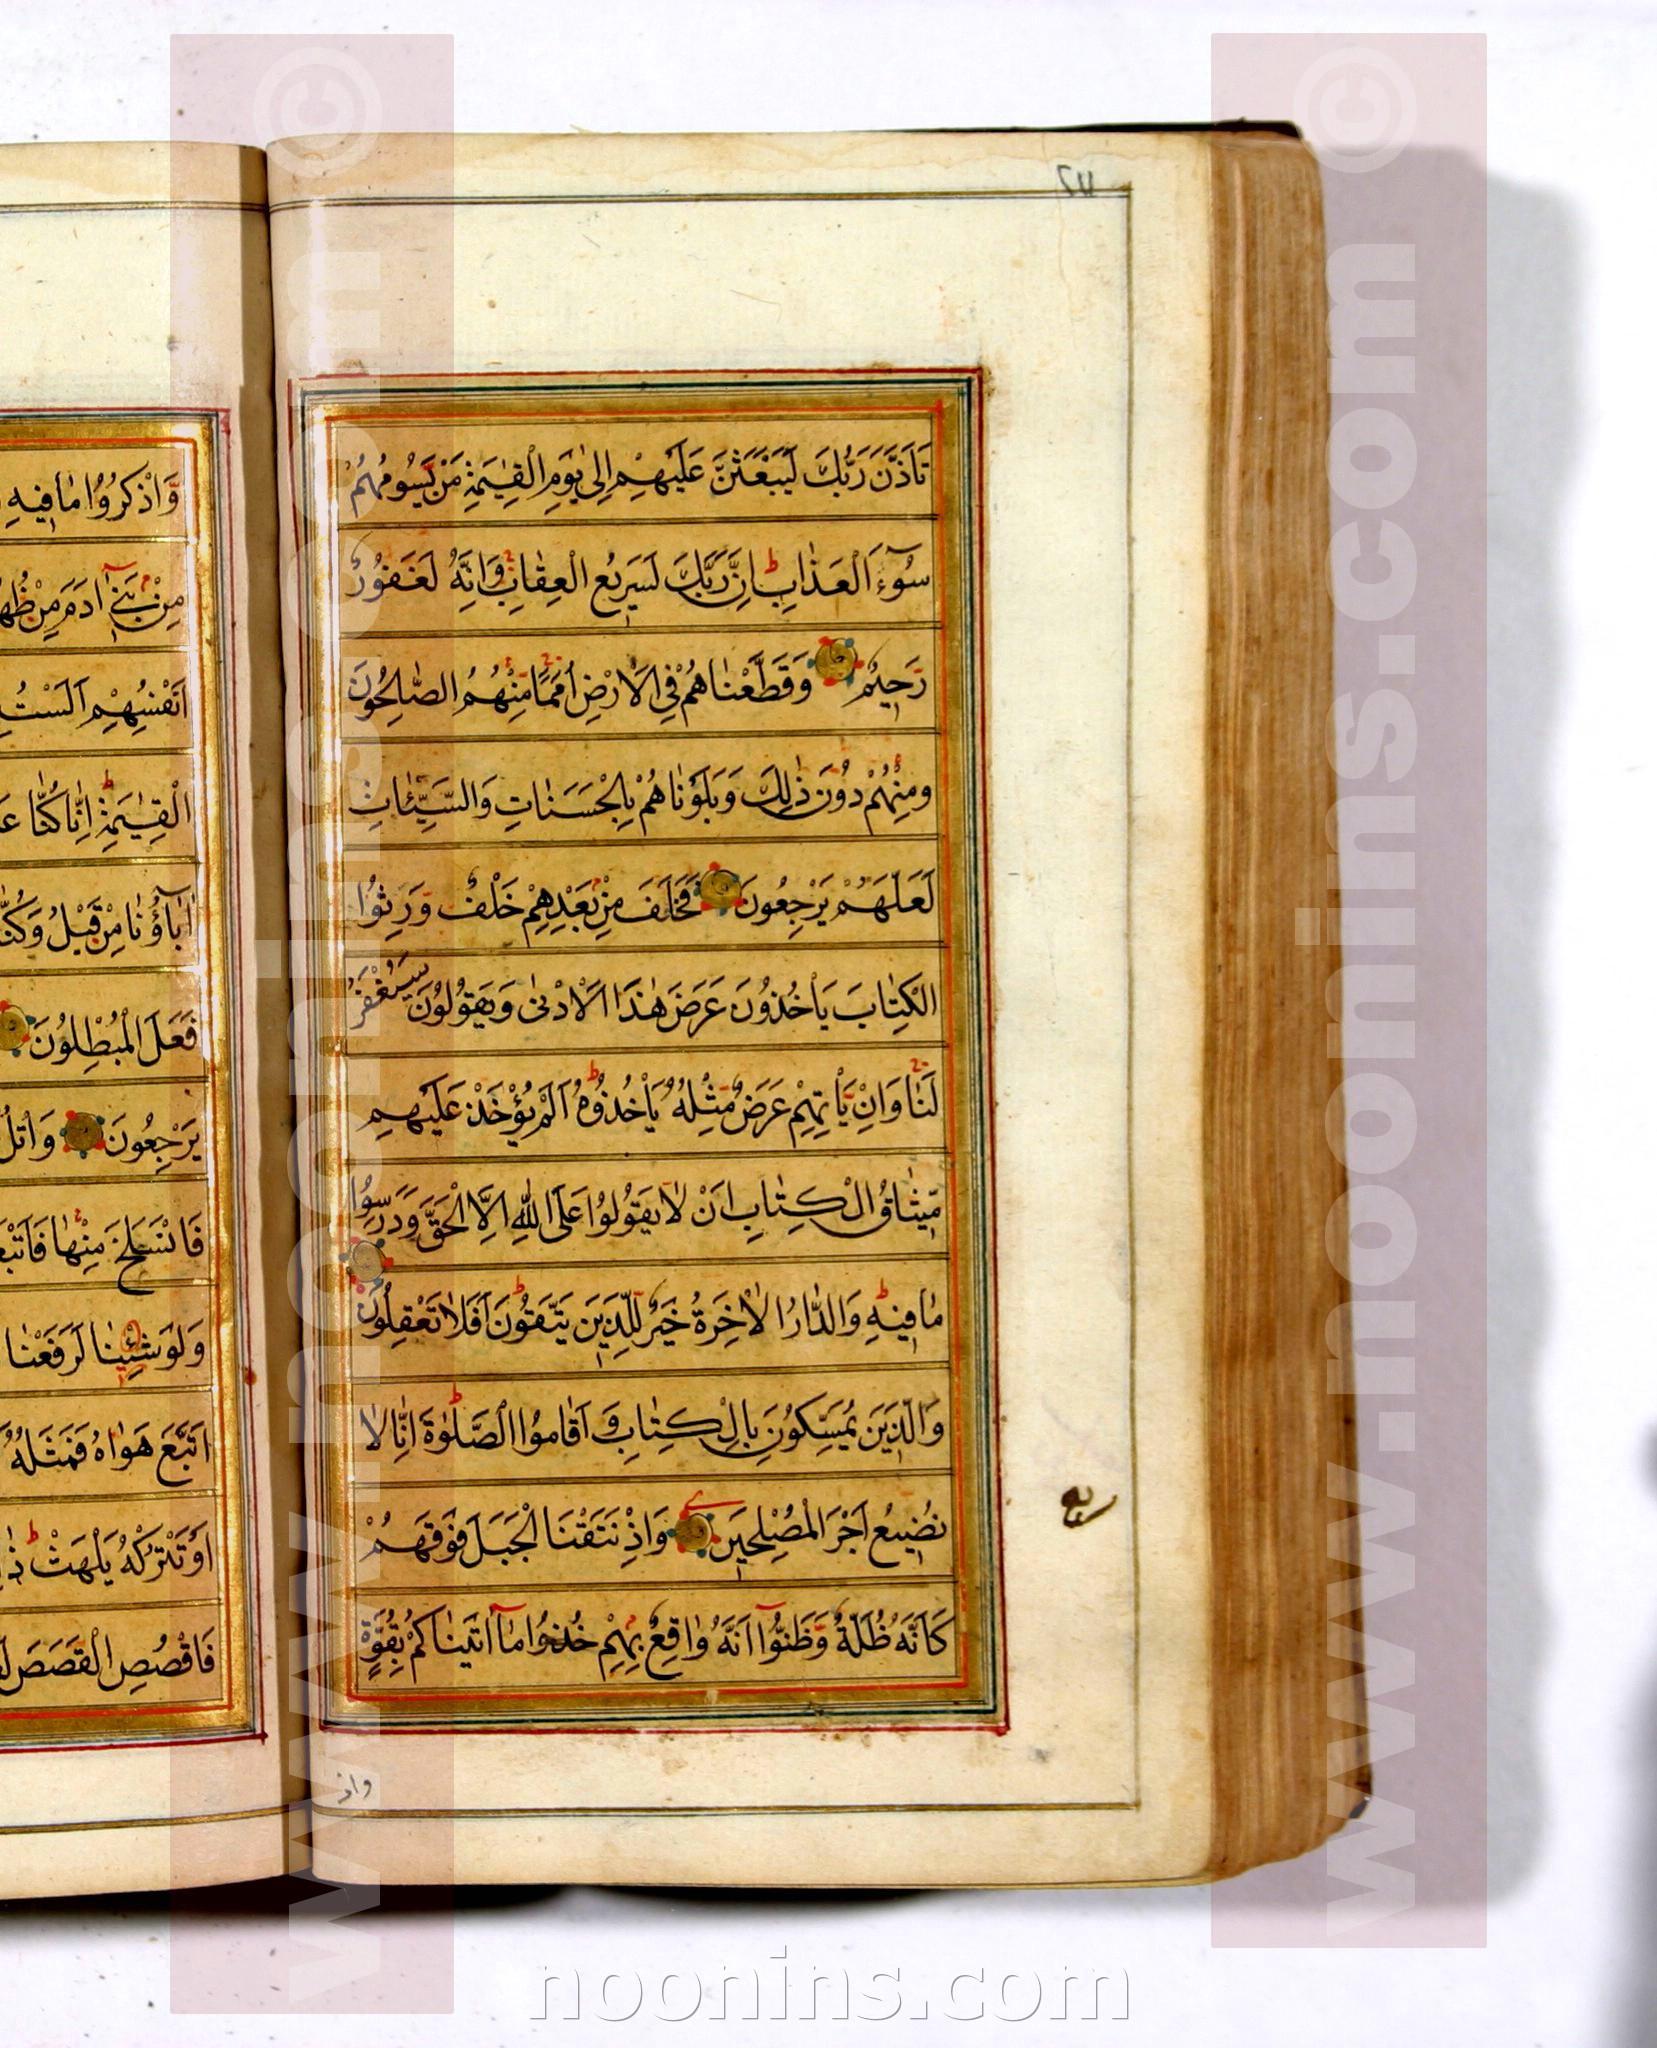 تَاَذَّنَ رَبُّكَ لَيَبْعَثَنَّ عَلَيْهِمْ اِلىٰ يَوْمِ الْقِيٰمَةِ مَنْ يَسُومُهُمْ
سُوٓءَ الْعَذٰابِ ط اِنَّ رَبَّكَ لَسَرِيعُ الْعِقٰابِ وَاِنَّهُ لَغَفُورٌ
رَحِيمٌ وَقَطَّعْنٰاهُمْ فِي الْاَرْضِ اُمَمًا مِنْهُمُ الصّٰالِحُونَ
وَمِنْهُمْ دُونَ ذٰلِكَ وَبَلَوْنٰاهُمْ بِالْحَسَنٰاتِ وَالسَّيِّئٰاتِ
لَعَلَّهُمْ يَرْجِعُونَ فَخَلَفَ مِنْ بَعْدِهِمْ خَلْفٌ وَرِثُوا
الْكِتٰابَ يَأْخُذُونَ عَرَضَ هٰذَا الْاَدْنىٰ وَيَقُولُونَ سَيُغْفَرُ
لَنٰا وَاِنْ يَأْتِهِمْ عَرَضٌ مِثْلُهُ يَأْخُذُوهُ ط اَلَمْ يُؤْخَذْ عَلَيْهِمْ
مِيثٰاقُ الْكِتٰابِ اَنْ لاٰ يَقُولُوا عَلَى اللّٰهِ اِلَّا الْحَقَّ وَدَرَسُوا
مٰا فِيهِ ط وَالدّٰارُ الْاٰخِرَةُ خَيْرٌ لِلَّذِينَ يَتَّقُونَ ط اَفَلاٰ تَعْقِلُونَ
وَالَّذِينَ يُمَسِّكُونَ بِالْكِتٰابِ وَاَقٰامُوا الصَّلٰوةَ ط اِنّٰا لاٰ
نُضِيعُ اَجْرَ الْمُصْلِحِينَ وَاِذْ نَتَقْنَا الْجَبَلَ فَوْقَهُمْ
كَاَنَّهُ ظُلَّةٌ وَظَنُّوٓا اَنَّهُ وٰاقِعٌ بِهِمْ خُذُوا مٰٓا اٰتَيْنٰاكُمْ بِقُوَّةٍ
واذ
وَاذْكُرُوا مٰا فِيهِ
مِنْ بَنِيٓ اٰدَمَ مِنْ
اَنْفُسِهِمْ اَلَسْتُ
الْقِيٰمَةِ ط اِنّٰا كُنّٰا
اٰبٰٓاؤُنٰا مِنْ قَبْلُ وَكُنّٰا
فَعَلَ الْمُبْطِلُونَ
يَرْجِعُونَ وَاتْلُ
فَانْسَلَخَ مِنْهٰا
وَلَوْ شِئْنٰا لَرَفَعْنٰا
اتَّبَعَ هَوٰاهُ فَمَثَلُهُ
اَوْ تَتْرُكْهُ يَلْهَثْ ط
فَاقْصُصِ الْقَصَصَ
www.noonins.com ©
www.noonins.com ©
noonins.com